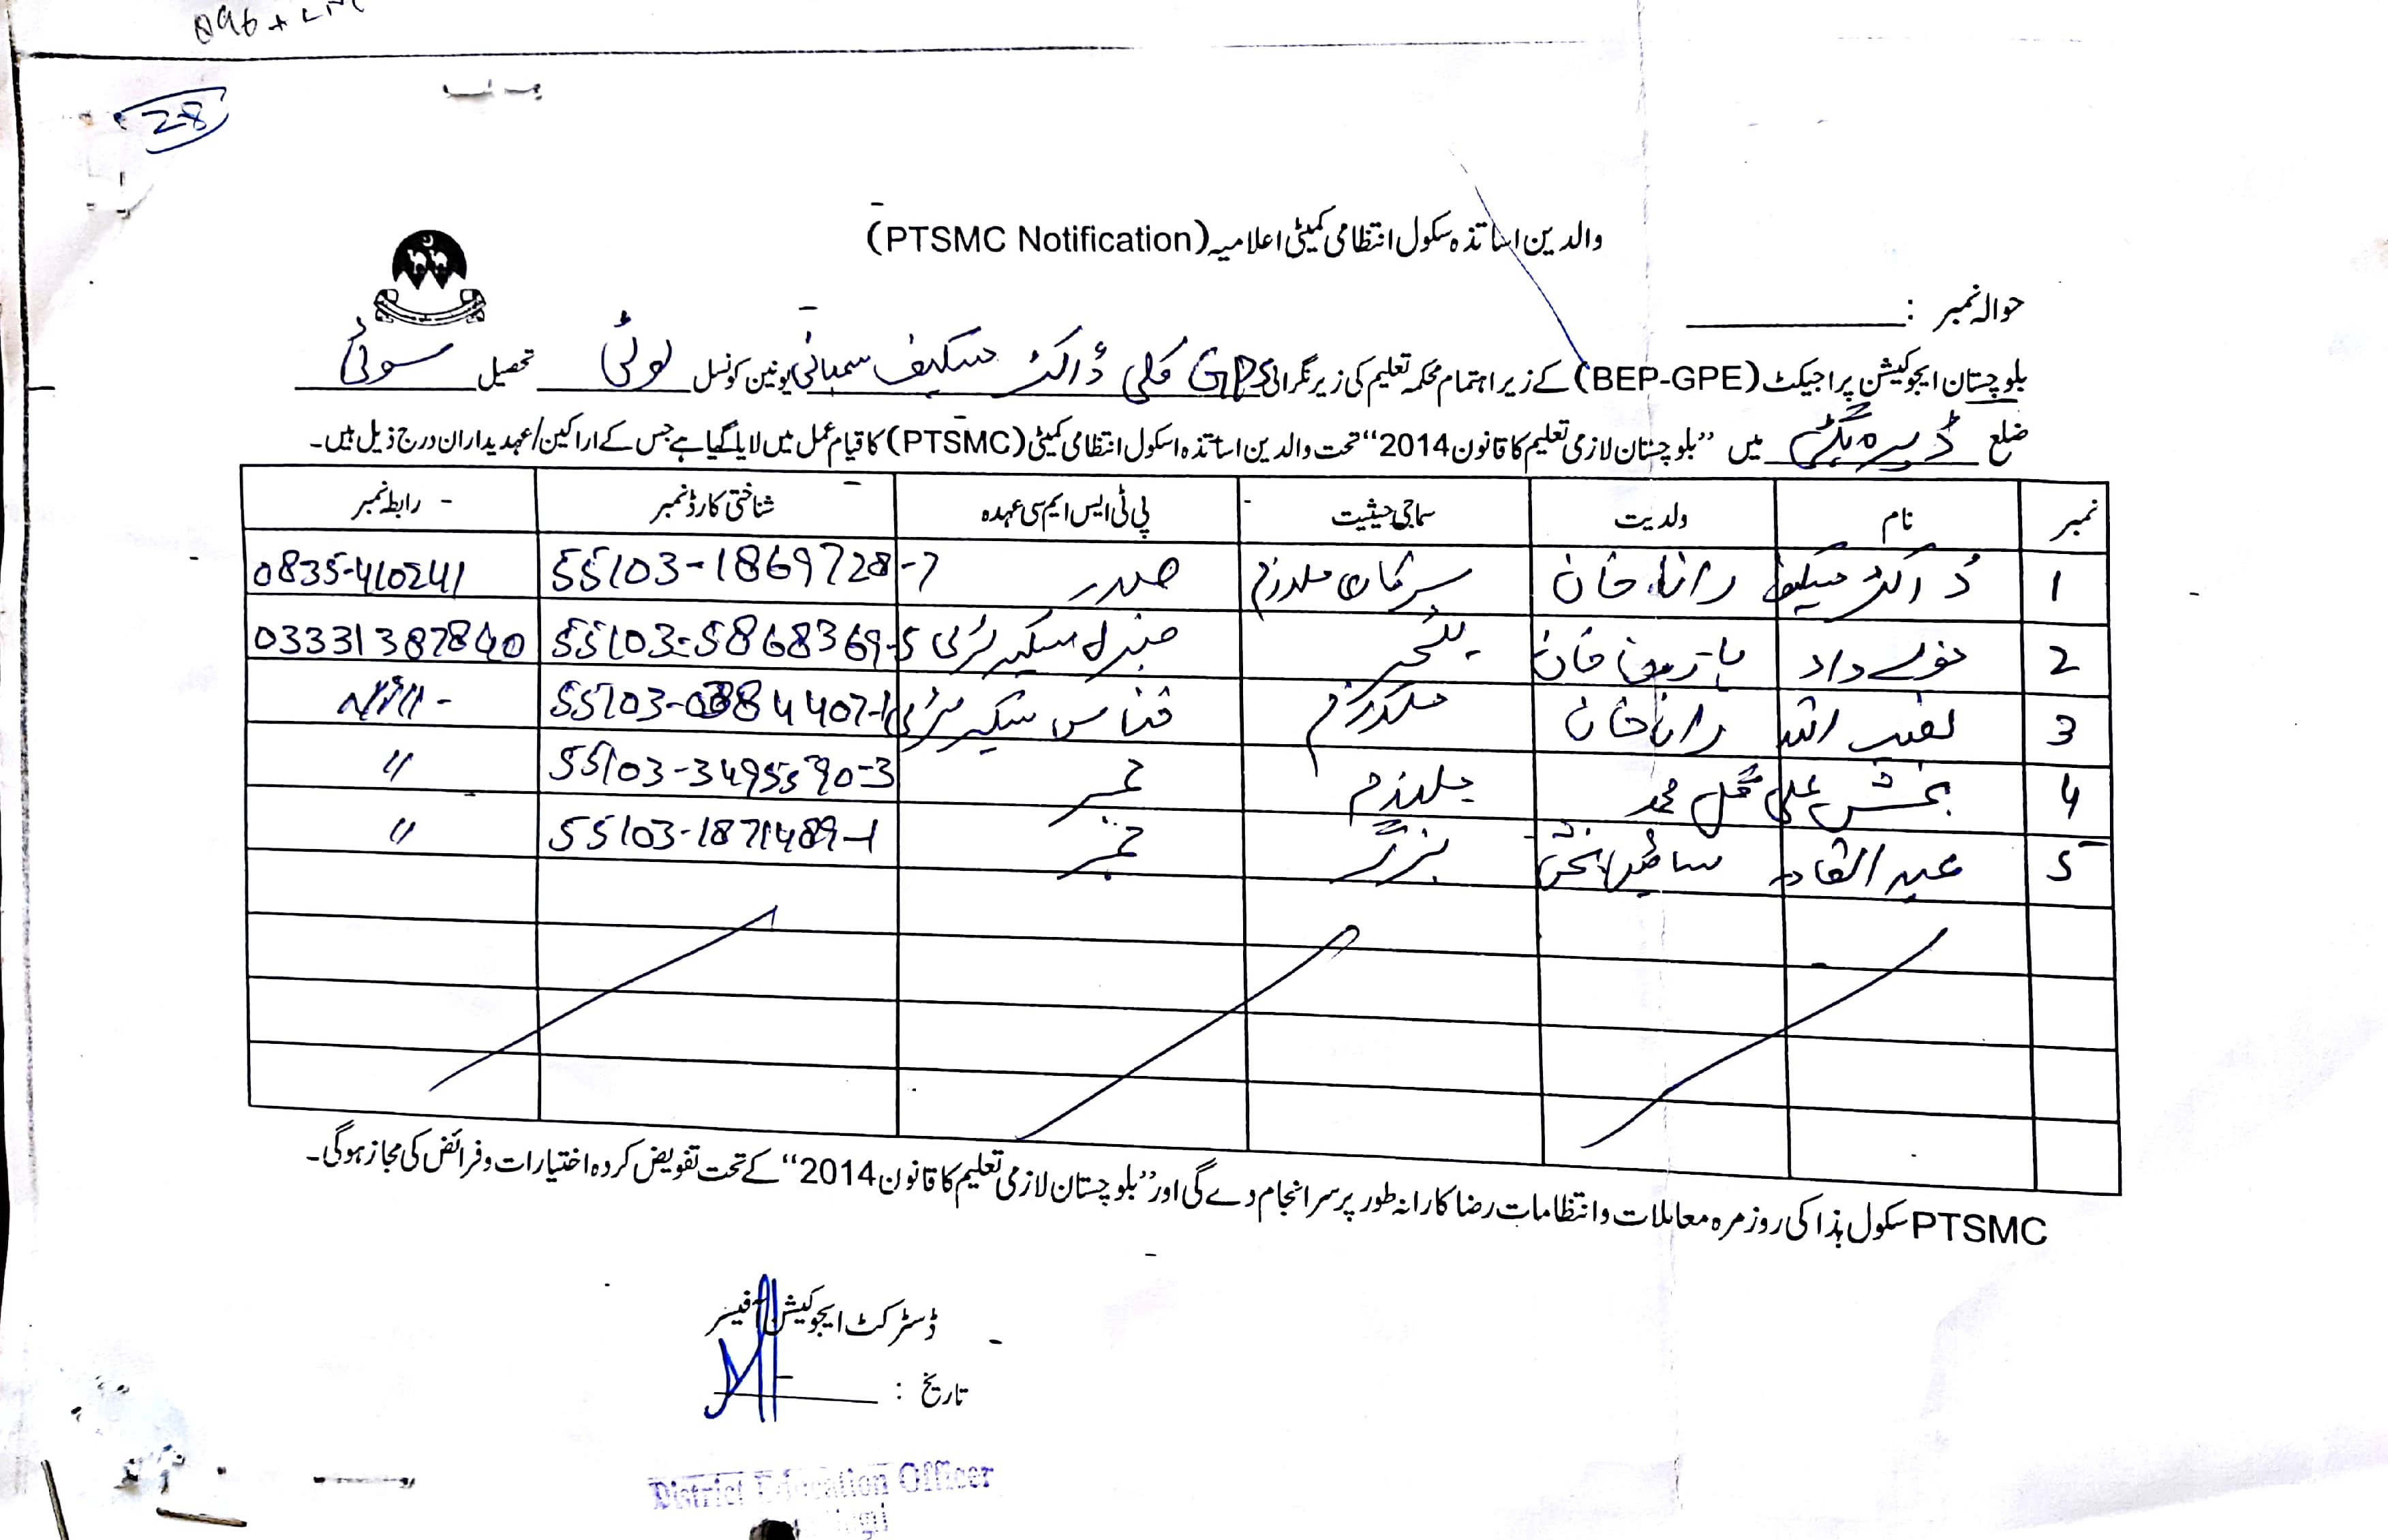 28
والدین اساتذہ سکول انتظامی کمیٹی اعلامیہ (PTSMC Notification)
حوالہ نمبر :
بلوچستان ایجوکیشن پراجیکٹ (BEP-GPE) کے زیر اہتمام محکمہ تعلیم کی زیر نگرانی GPS کلی ڈاکٹر یونین کونسل لوٹی تحصیل سوئی
ضلع ڈیرہ بگٹی میں ”بلوچستان لازمی تعلیم کا قانون 2014“ تحت والدین اساتذہ اسکول انتظامی کمیٹی (PTSMC) کا قیام عمل میں لایا گیا ہے جس کے اراکین/عہدیداران درج ذیل ہیں۔
نمبر نام ولدیت سماجی حیثیت پی ٹی ایس ایم سی عہدہ شناختی کارڈ نمبر رابطہ نمبر
1 ڈاکٹر خان صدر 55103-1869728-7 0835-410241
2 داد خان ٹیچر جنرل سیکیرٹری 55103-5868369-5 03331387840
3 خان ملازم فنانس سیکیرٹری
4 بخش علی گل محمد ملازم ممبر 55103-3495590-3 〃
5 عبد القادر سائیں بخش بزگر ممبر 55103-1871489-1 〃
PTSMC سکول ہذا کی روزمرہ معاملات و انتظامات رضا کارانہ طور پر سرانجام دے گی اور ”بلوچستان لازمی تعلیم کا قانون 2014“ کے تحت تفویض کردہ اختیارات و فرائض کی مجاز ہوگی۔
ڈسٹرکٹ ایجوکیشن آفیسر
تاریخ :
District Education Officer